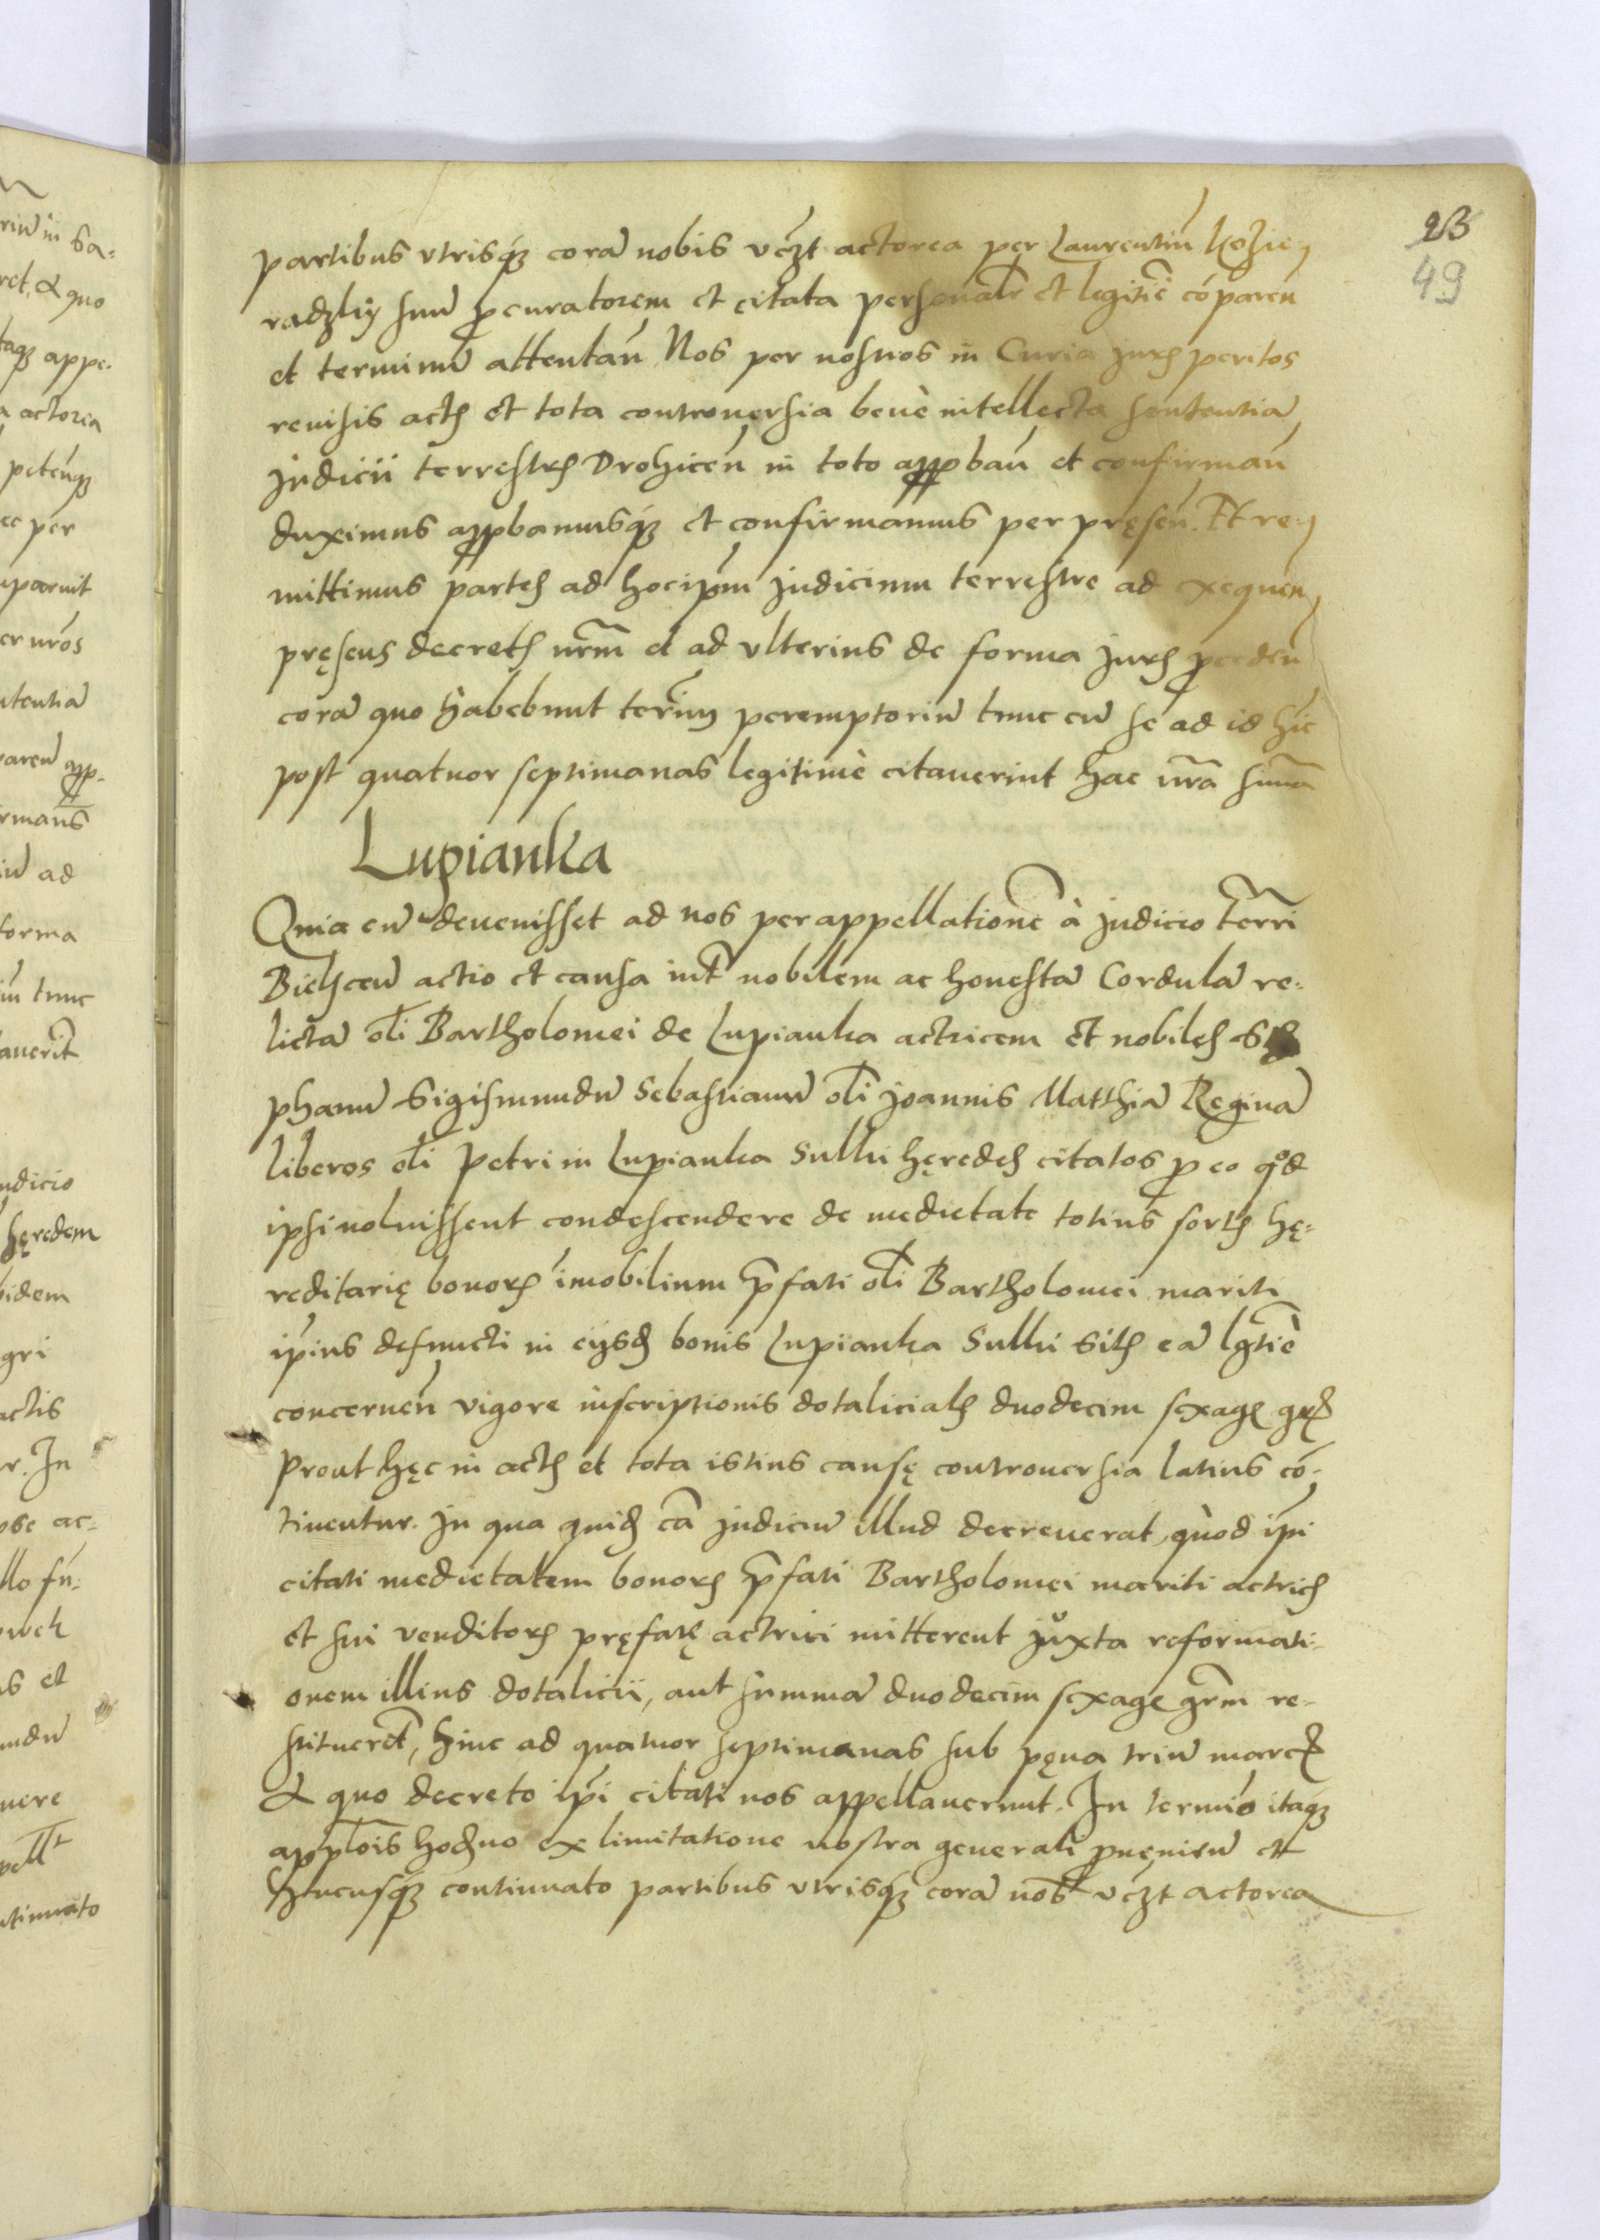 23
49
partibus vtrisq́ꝫ corā nobis vcꝫt actorea per Laurentiū Kosie,
radzkij suū ꝓcuratorem et citata personalr̄ et legitiē cóparen̄
et terminū attentan̄ Nos per nostros in Curia Jurꝭ peritos
reuisis actꝭ et tota controuęrsia benè intellecta sententiā
Judicii terrestrꝭ Drohicen̄ in toto appꝓban̄ et confirman̄
duximus appꝓbamusq́ꝫ et confirmamus per pręsen̄. Et re,
mittimus partes ad hocip̄m Judicium terrestre ad exequen,
pręsens decretꝭ nr̄m et ad vlterius de forma Jurꝭ ꝓceden̄
corā quo habebunt term̄ peremptoriū tunc cū se ad id hīc
post quatuor septimanas legitimè citauerint hac nr̄a sm̄ia
Lupianka
Quia cū deuenisset ad nos per appellationē à Judicio terr̄ri
Bielscen̄ actio et causa int̄ nobilem ac honestā Cordulā re-
lictā oli Bartholomei de Lupianka actricem et nobilęs Ste
phanū Sigismundū Sebastianū oli Joannis Matthiā Reginā
liberos oli Petri in Lupianka Sulki hęredes citatos ꝓ eo qd
ipsi noluissent condescendere de medietate totius sortꝭ hę-
reditarię bonorꝭ imobilium p̄fati oli Bartholomei mariti
ip̄ius defuncti in eijsdꝭ bonis Lupianka Sulki sitꝭ eā lgtiē
concernen̄ vigore inscriptionis dotalicialꝭ duodecim sexagꝭ grꝭ
Prout hęc in actꝭ et tota istius causę controuersia latius có-
tinentur. In qua quidꝭ cā Judiciū illud decreuerat, quòd ip̄i
citati medietatem bonorꝭ p̄fati Bartholomei mariti actricꝭ
et sui venditorꝭ pręfatę actrici mitterent Juxta reformati-
onem illius dotalicii, aut summā duodecim sexage gr̄m re-
stitueret̄, hinc ad quatuor septimanas sub pęna triū marcꝭ
A quo decreto ip̄i citati nos appellauerunt. In termīo itaqꝫ
appl̄ois hodꝭno ex limitatione nostra generali ꝓueniēn et
hucusqꝫ continuato partibus vtrisqꝫ corā nob̄ vcꝫt actorea